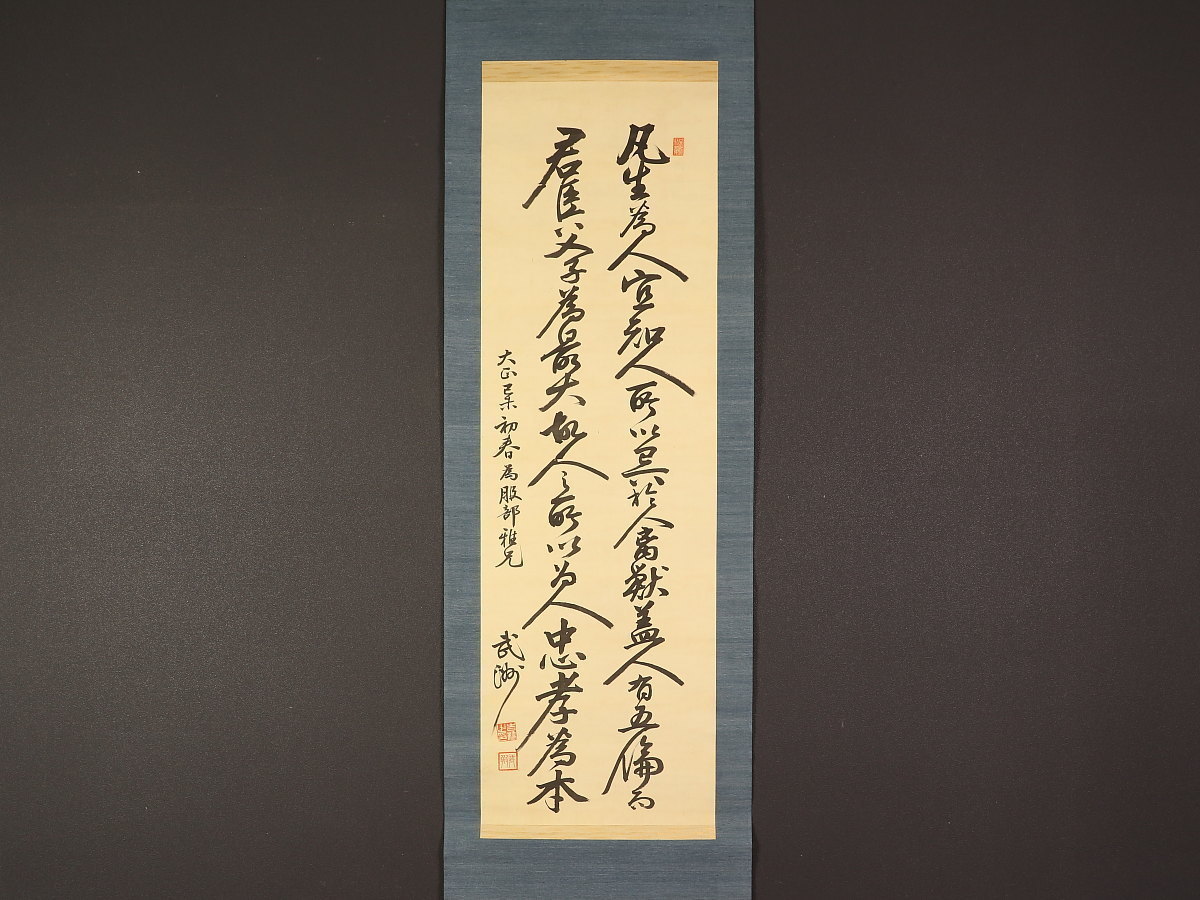 凡生為人宜知人所以異於禽獣蓋人有五倫而
君臣父子為最大故人之所以為人忠孝為本
大正己未初春為服部雅兄
武洲